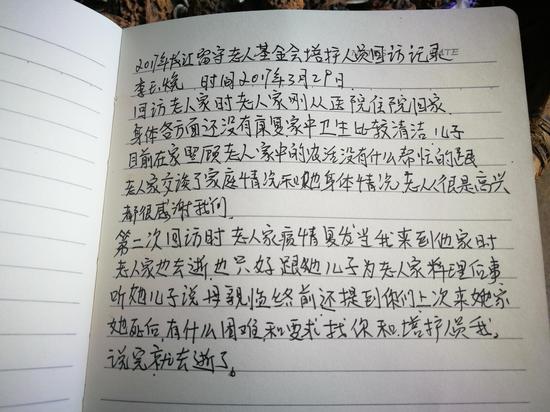 2017年龙江留守老人基金会增护人员回访记录
DATE
李玉焕 时间2017年3月29日
回访老人家时老人家刚从医院住院回家
身体各方面还没有康复家中卫生比较清洁儿子
目前在家照顾老人家中的农活没有什么帮忙的跟
老人家交谈了家庭情况和她身体情况老人很是高兴
都很感谢我们.
第二次回访时老人家病情复发当我来到他家时
老人家也去逝也只好跟她儿子为老人家料理后事
听她儿子说母亲临终前还提到你们上次来她家
她死后有什么困难和要求找你和培护人员我.
说完就去逝了。